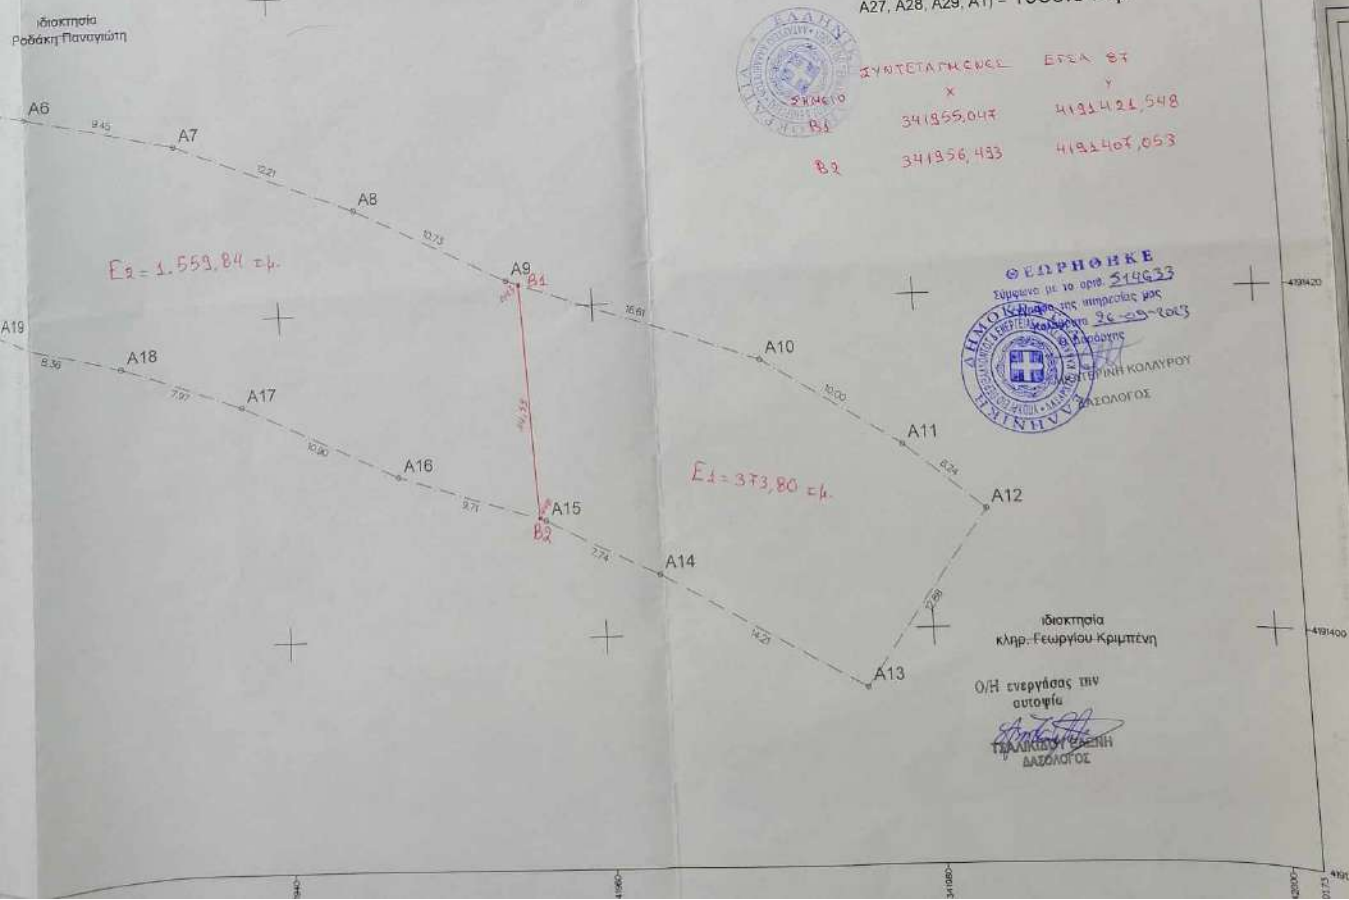 ιδιοκτησία
Ροδάκη Παναγιώτη
Α27, Α28, Α29, Α1) =
ΣΥΝΤΕΤΑΓΜΕΝΕΣ ΕΓΣΑ 87
ΣΗΜΕΙΟ X Y
B1 341955,047 4191421,548
B2 341956,493 4191407,053
A6
9.45
A7
12.21
A8
10.73
A9
B1
16.61
A10
10.00
A11
8.24
A12
12.88
A13
14.21
A14
7.74
A15
B2
9.71
A16
10.90
A17
7.97
A18
8.36
A19
14,55
E2 = 1.559,84 τμ.
E1 = 373,80 τμ.
ΘΕΩΡΗΘΗΚΕ
Σύμφωνα με το αριθ. 514633
της υπηρεσίας μας
26-09-2023
ΕΛΛΗΝΙΚΗ ΔΗΜΟΚΡΑΤΙΑ
ΚΟΛΛΥΡΟΥ
ΔΑΣΟΛΟΓΟΣ
ιδιοκτησία
κληρ. Γεωργίου Κριμπένη
Ο/Η ενεργήσας την
αυτοψία
ΤΣΑΛΙΚΙΔΟΥ ΕΛΕΝΗ
ΔΑΣΟΛΟΓΟΣ
4191420
4191400
341980